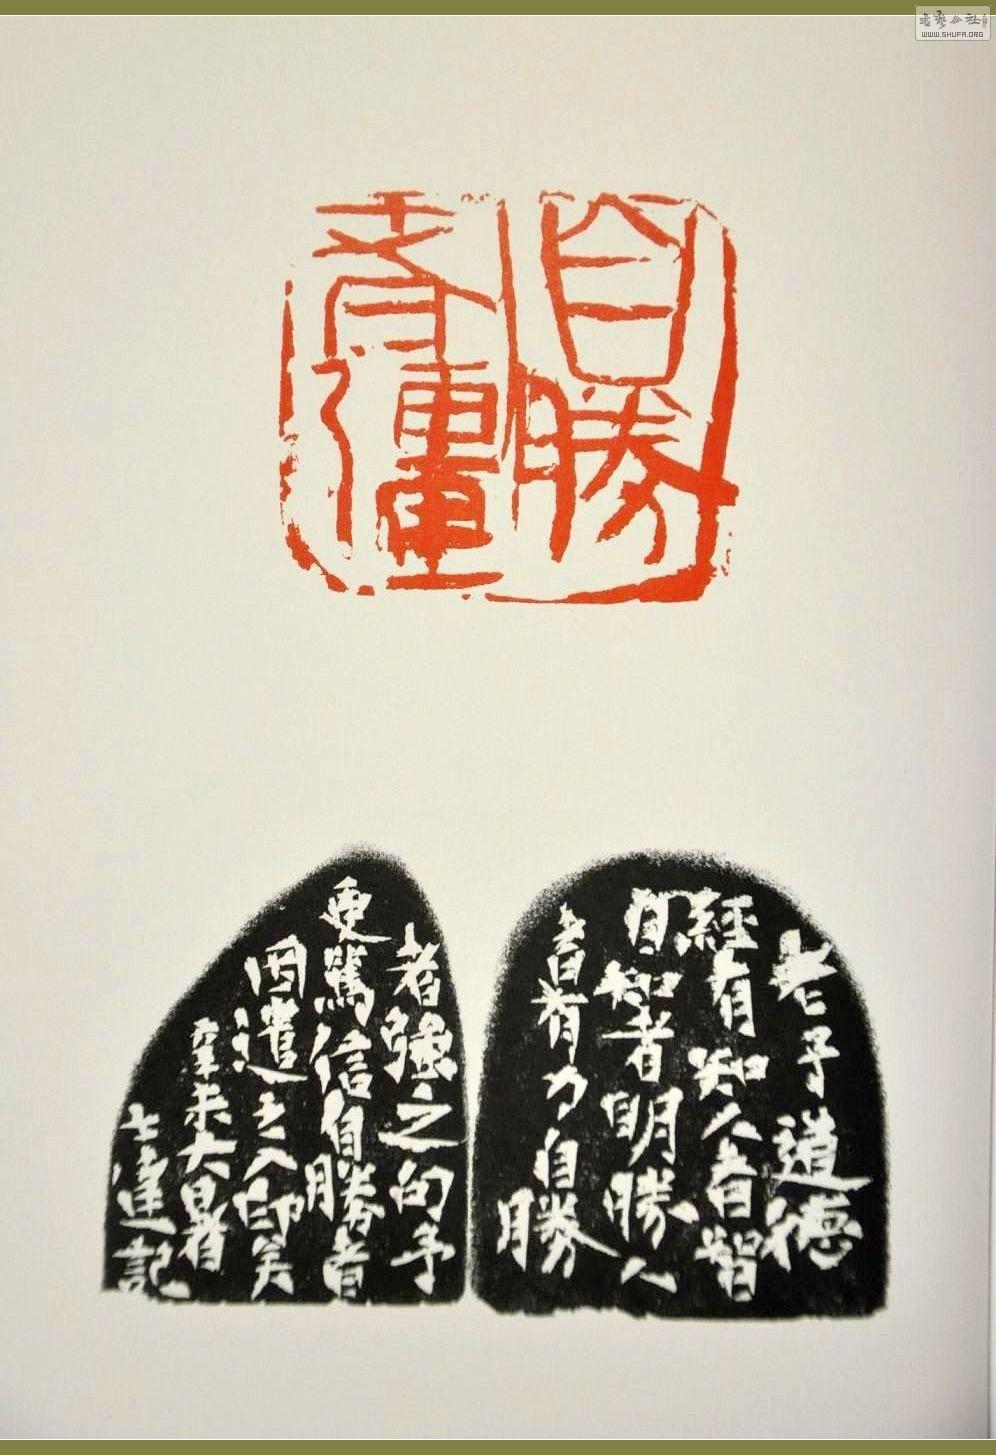 書藝公社
WWW.SHUFA.ORG
自勝
者彊
老子道德
經有知人者智
自知者明勝人
者有力自勝
者強之句予
更篤信自勝者
因遣之入印矣
辛未大暑
士達記